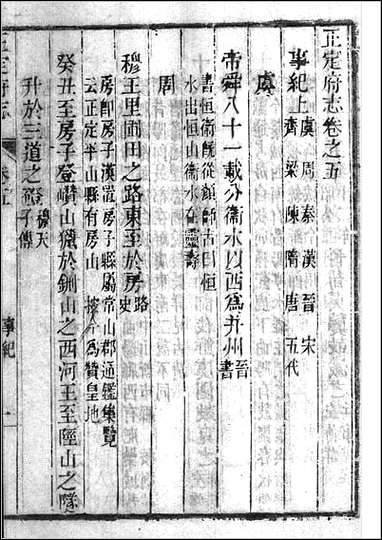 正定府志卷之五
事紀上 虞 周 秦 漢 晉 宋
齊 梁 陳 隋 唐 五代
虞
帝舜八十一載分衞水以西為并州 晉
書
書恒衞旣從顔師古曰恒
水出恒山衞水在靈壽
周
穆王里圃田之路東至於房 路
史
房卽房子漢置房子縣屬常山郡通鑑集覽
云正定平山縣有房山 按 今為贊皇地
癸丑至房子登嶆山獵於鉶山之西河王至陘山之隊
升於三道之磴 穆天
子傳
正定府志
卷五
事紀
一